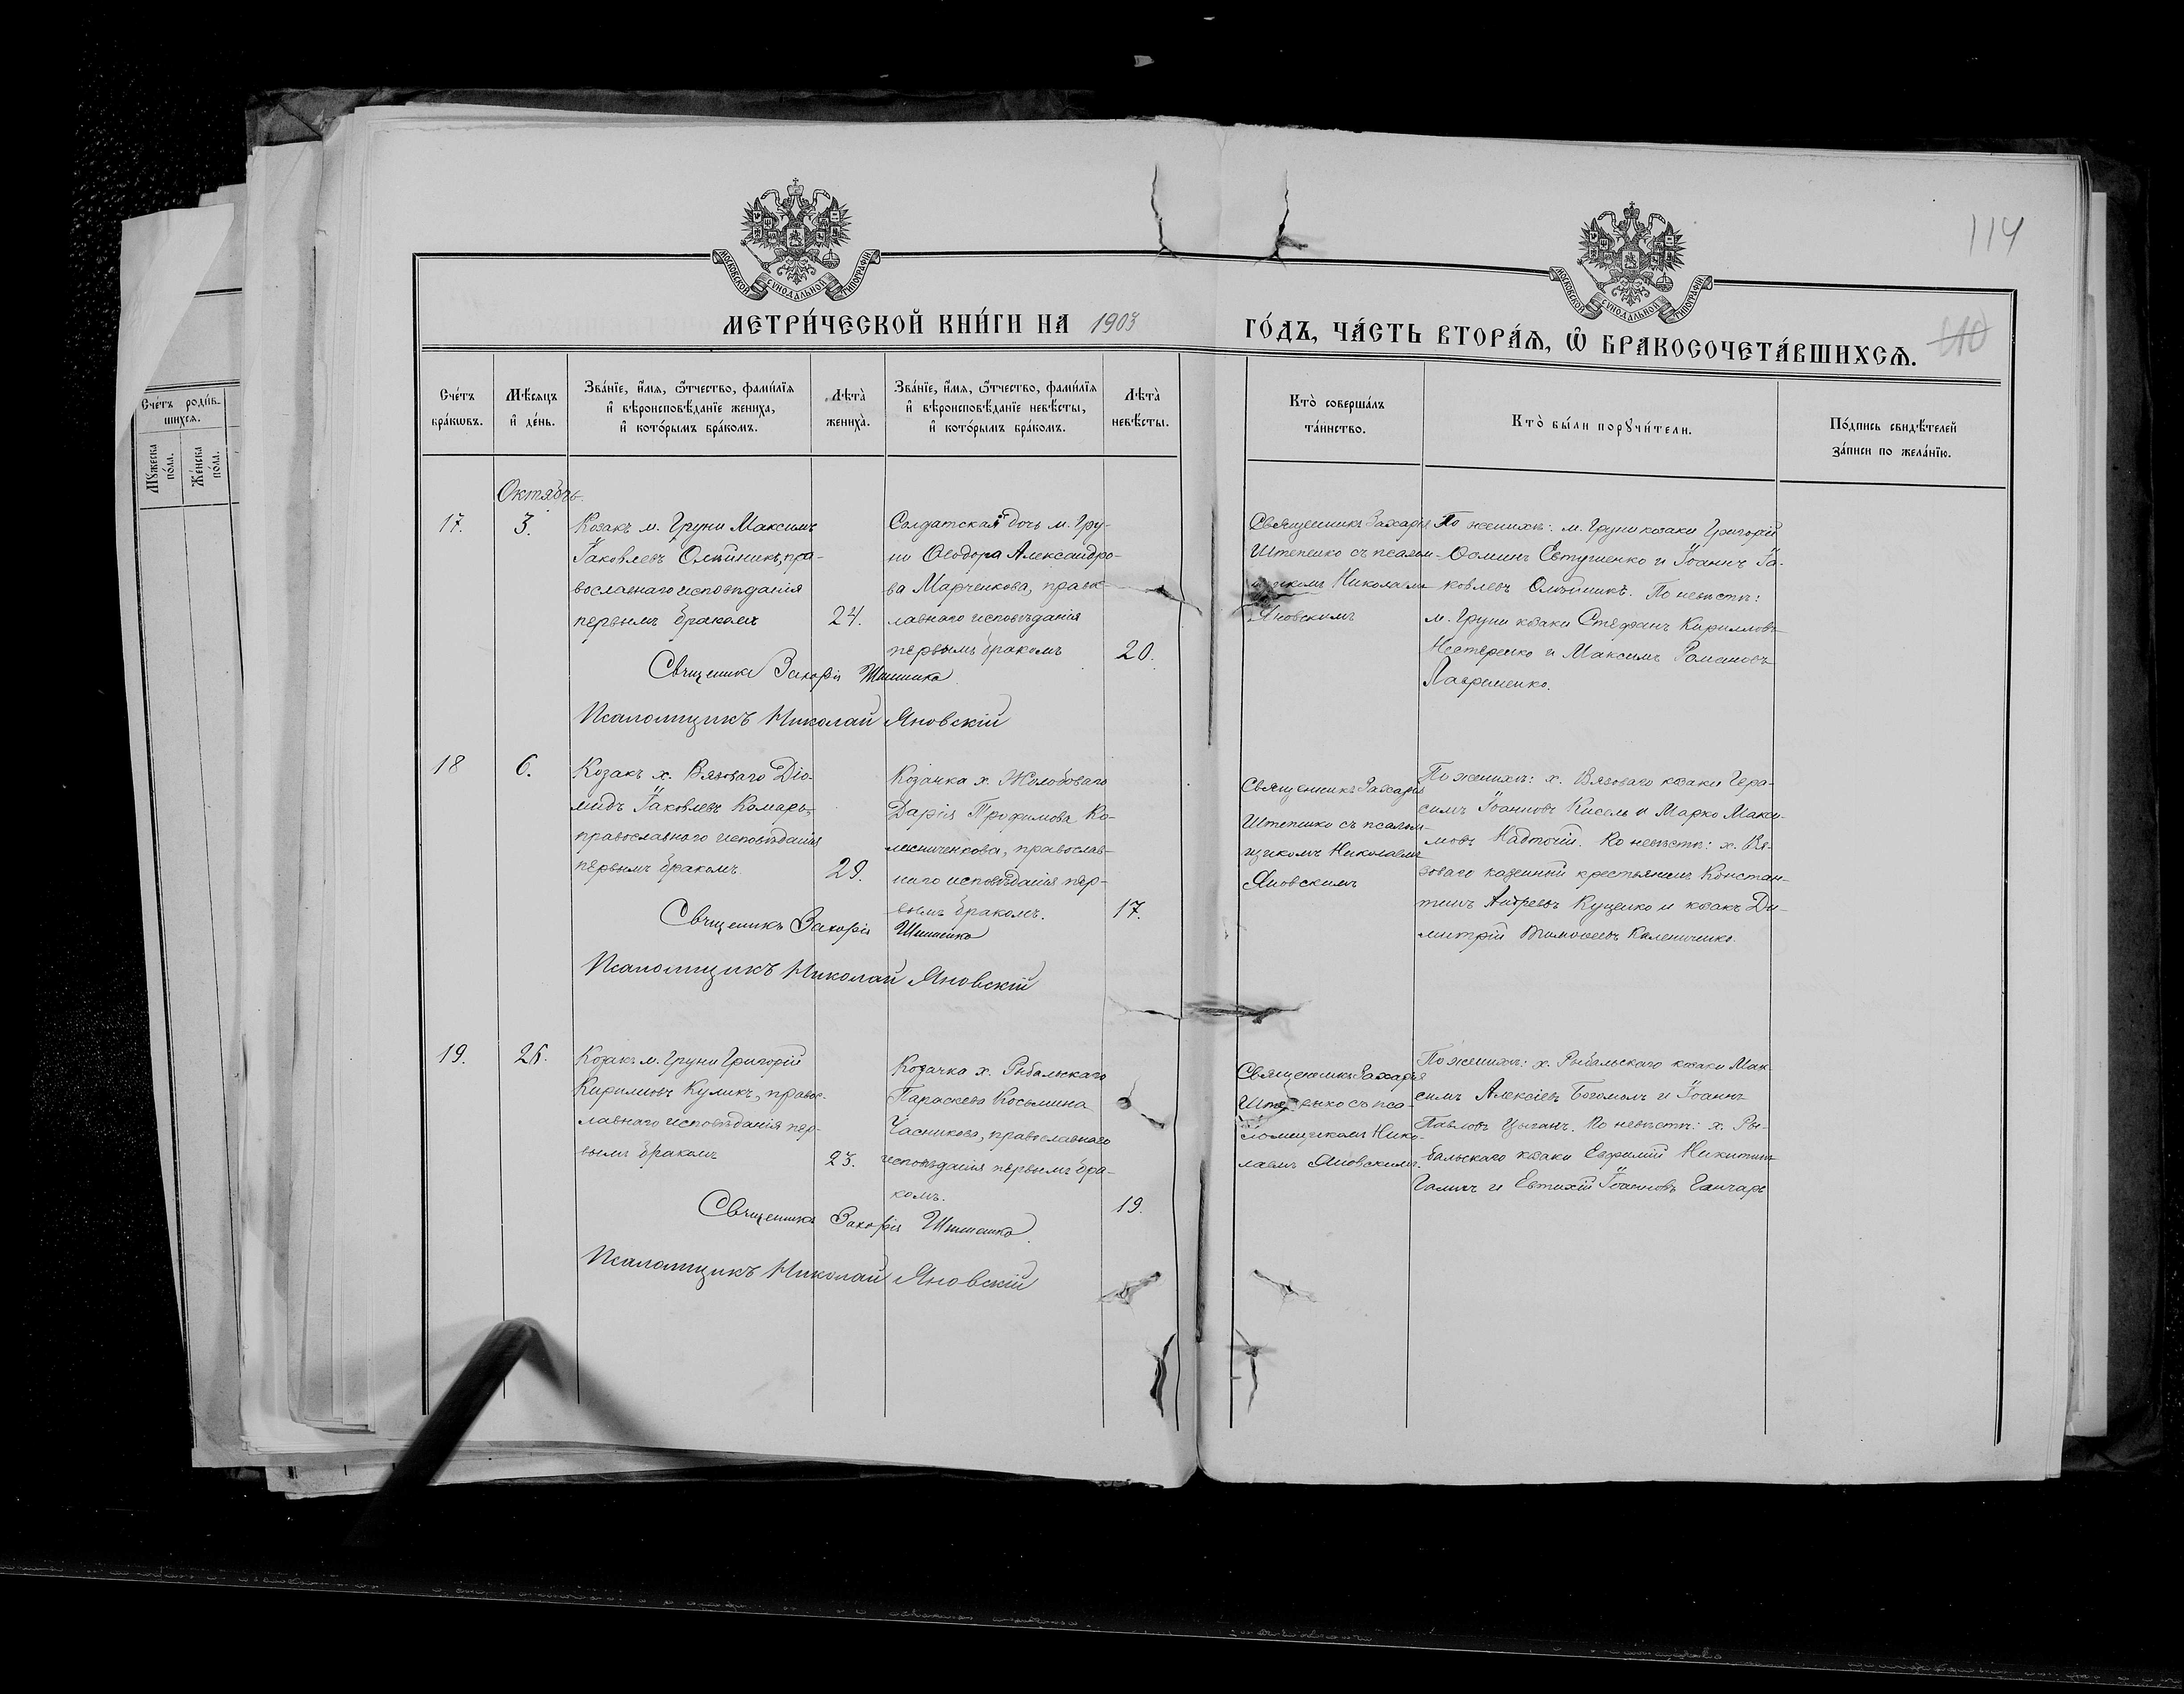 114
МОСКОВСКОЙ СУНОДАЛЬНОЙ ТИПОГРАФІИ
МОСКОВСКОЙ СУНОДАЛЬНОЙ ТИПОГРАФІИ
МЕТРИ́ЧЕСКОЙ КНИ́ГИ НА 1903
ГО́ДЪ, ЧА́СТЬ ВТОРА́Ѧ, Ѽ БРАКОСОЧЕТА́ВШИХСѦ.
Сче́тъ роди́в-
шихсѧ.
Мꙋжеска по́ла.
Же́нска по́ла.
Сче́тъ
бра́кѡвъ.
Мѣ́сѧцъ
и҆ де́нь.
Зва́нїе, и҆́мѧ, ѻ҆́тчество, фами́лїѧ
и҆ вѣроисповѣ́данїе жениха̀,
и҆ кото́рымъ бра́комъ.
Лѣта̀
жениха̀.
Зва́нїе, и҆́мѧ, ѻ҆́тчество, фами́лїѧ
и҆ вѣроисповѣ́данїе невѣ́сты,
и҆ кото́рымъ бра́комъ.
Лѣта̀
невѣ́сты.
Кто̀ соверша́лъ
та́инство.
Кто̀ бы́ли порꙋчи́тели.
По́дпись свидѣ́телей
за́писи по жела́нїю.
Октябрь.
17.
3.
Козакъ м. Груни Максимъ
Іаковлевъ Олѣйникъ, пра-
вославнаго исповѣданія
первымъ бракомъ
24.
Солдатская дочь м. Гру-
ни Ѳеодора Александро-
ва Марченкова, правос-
лавнаго исповѣданія
первымъ бракомъ
20.
Священникъ Захарія
Штепенко съ псалом-
щикомъ Николаемъ
Яновскимъ
По женихѣ: м. Груни козаки Григорій
Ѳоминъ Евтушенко и Іоаннъ Іа-
ковлевъ Олѣйникъ. По невѣстѣ:
м. Груни козаки Стефанъ Кирилловъ
Нестеренко и Максимъ Романовъ
Лавриненко.
Священникъ Захарія Штепенко
Псаломщикъ Николай Яновскій
18
6.
Козакъ х. Вязоваго Діо-
мидъ Іаковлевъ Комаръ,
православнаго исповѣданія
первымъ бракомъ.
29.
Козачка х. Жолобоваго
Дарія Трофимова Ко-
лесниченкова, православ-
наго исповѣданія пер-
вымъ бракомъ.
17.
Священникъ Захарія
Штепенко съ псалом-
щикомъ Николаемъ
Яновскимъ
По женихѣ: х. Вязоваго козаки Гера-
симъ Іоанновъ Кисель и Марко Макси-
мовъ Надточій. По невѣстѣ: х. Вя-
зоваго казенный крестьянинъ Констан-
тинъ Андреевъ Куценко и козакъ Ди-
митрій Тимоѳеевъ Калениченко.
Священникъ Захарія Штепенко
Псаломщикъ Николай Яновскій
19.
26.
Козакъ м. Груни Григорій
Кирилловъ Куликъ, правос-
лавнаго исповѣданія пер-
вымъ бракомъ
23.
Козачка х. Рыбальскаго
Параскева Косьмина
Часникова, православнаго
исповѣданія первымъ бра-
комъ.
19.
Священникъ Захарія
Штепенко съ пса-
ломщикомъ Нико-
лаемъ Яновскимъ.
По женихѣ: х. Рыбальскаго козаки Мак-
симъ Алексіевъ Богомолъ и Іоаннъ
Павловъ Цыганъ. По невѣстѣ: х. Ры-
бальскаго козаки Евфимій Никитинъ
Галичъ и Евтихій Іоанновъ Ганчаръ
Священникъ Захарія Штепенко.
Псаломщикъ Николай Яновскій